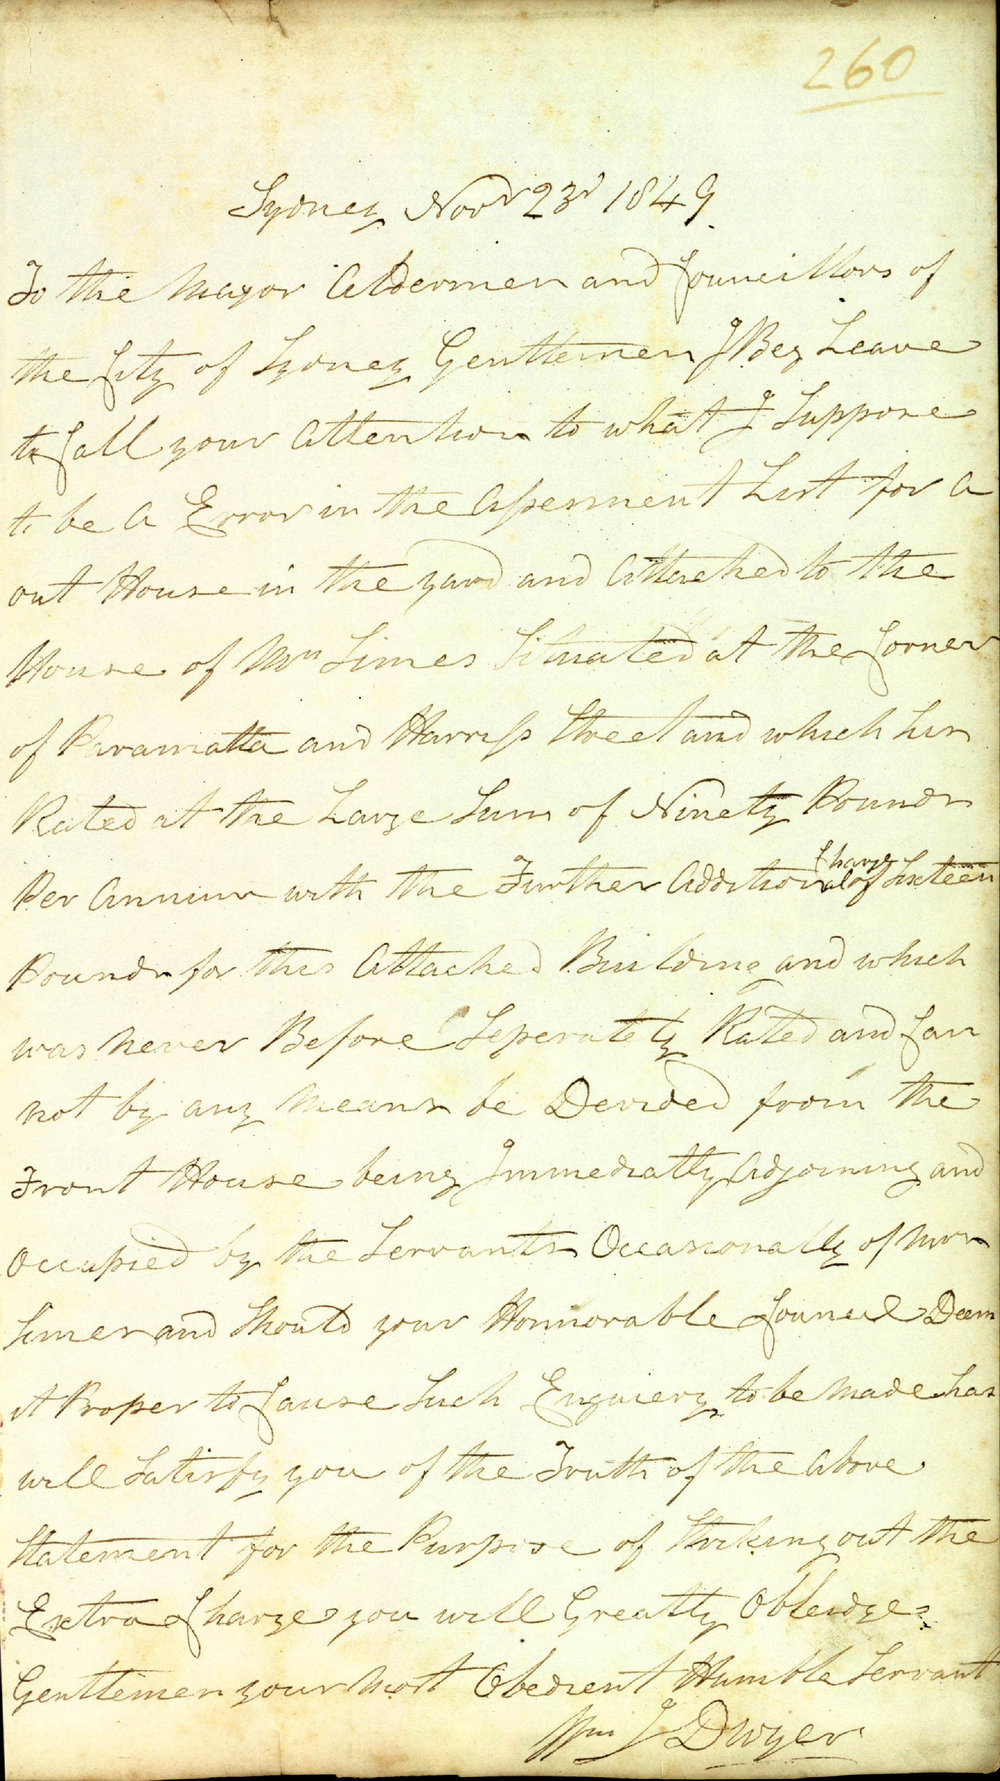 260
Sydney Novr 23d 1849
To the Mayor Aldermen and Councillors of
the City of Sydney Gentlemen I Beg Leave
to Call your Attention to what I Suppose
to be A Error in the Assesment List for A
out House in the yard and Attached to the
House of Mrs Simes Situated at the Corner
of Paramatta and Harriss Street and which his
Rated at the Large Sum of Ninety Pounds
Per Annum with the Further Additional Charge of Sixteen
Pounds for this Attached Building and which
was Never Before Seperately Rated and Can
not by any Means be Devided from the
Front House being Immediatly Adjoining and
Occupied by the Servants Occasionally of Mrs
Simes and Should your Honnorable Council Deem
it Proper to Cause Such Enquiery to be Made has
will Satisfy you of the Truth of the Above
Statement for the Purpose of Striking out the
Extra Charge you will Greatly Obleidge
Gentlemen your Most Obedient Humble Servant
Wm J Dwyer